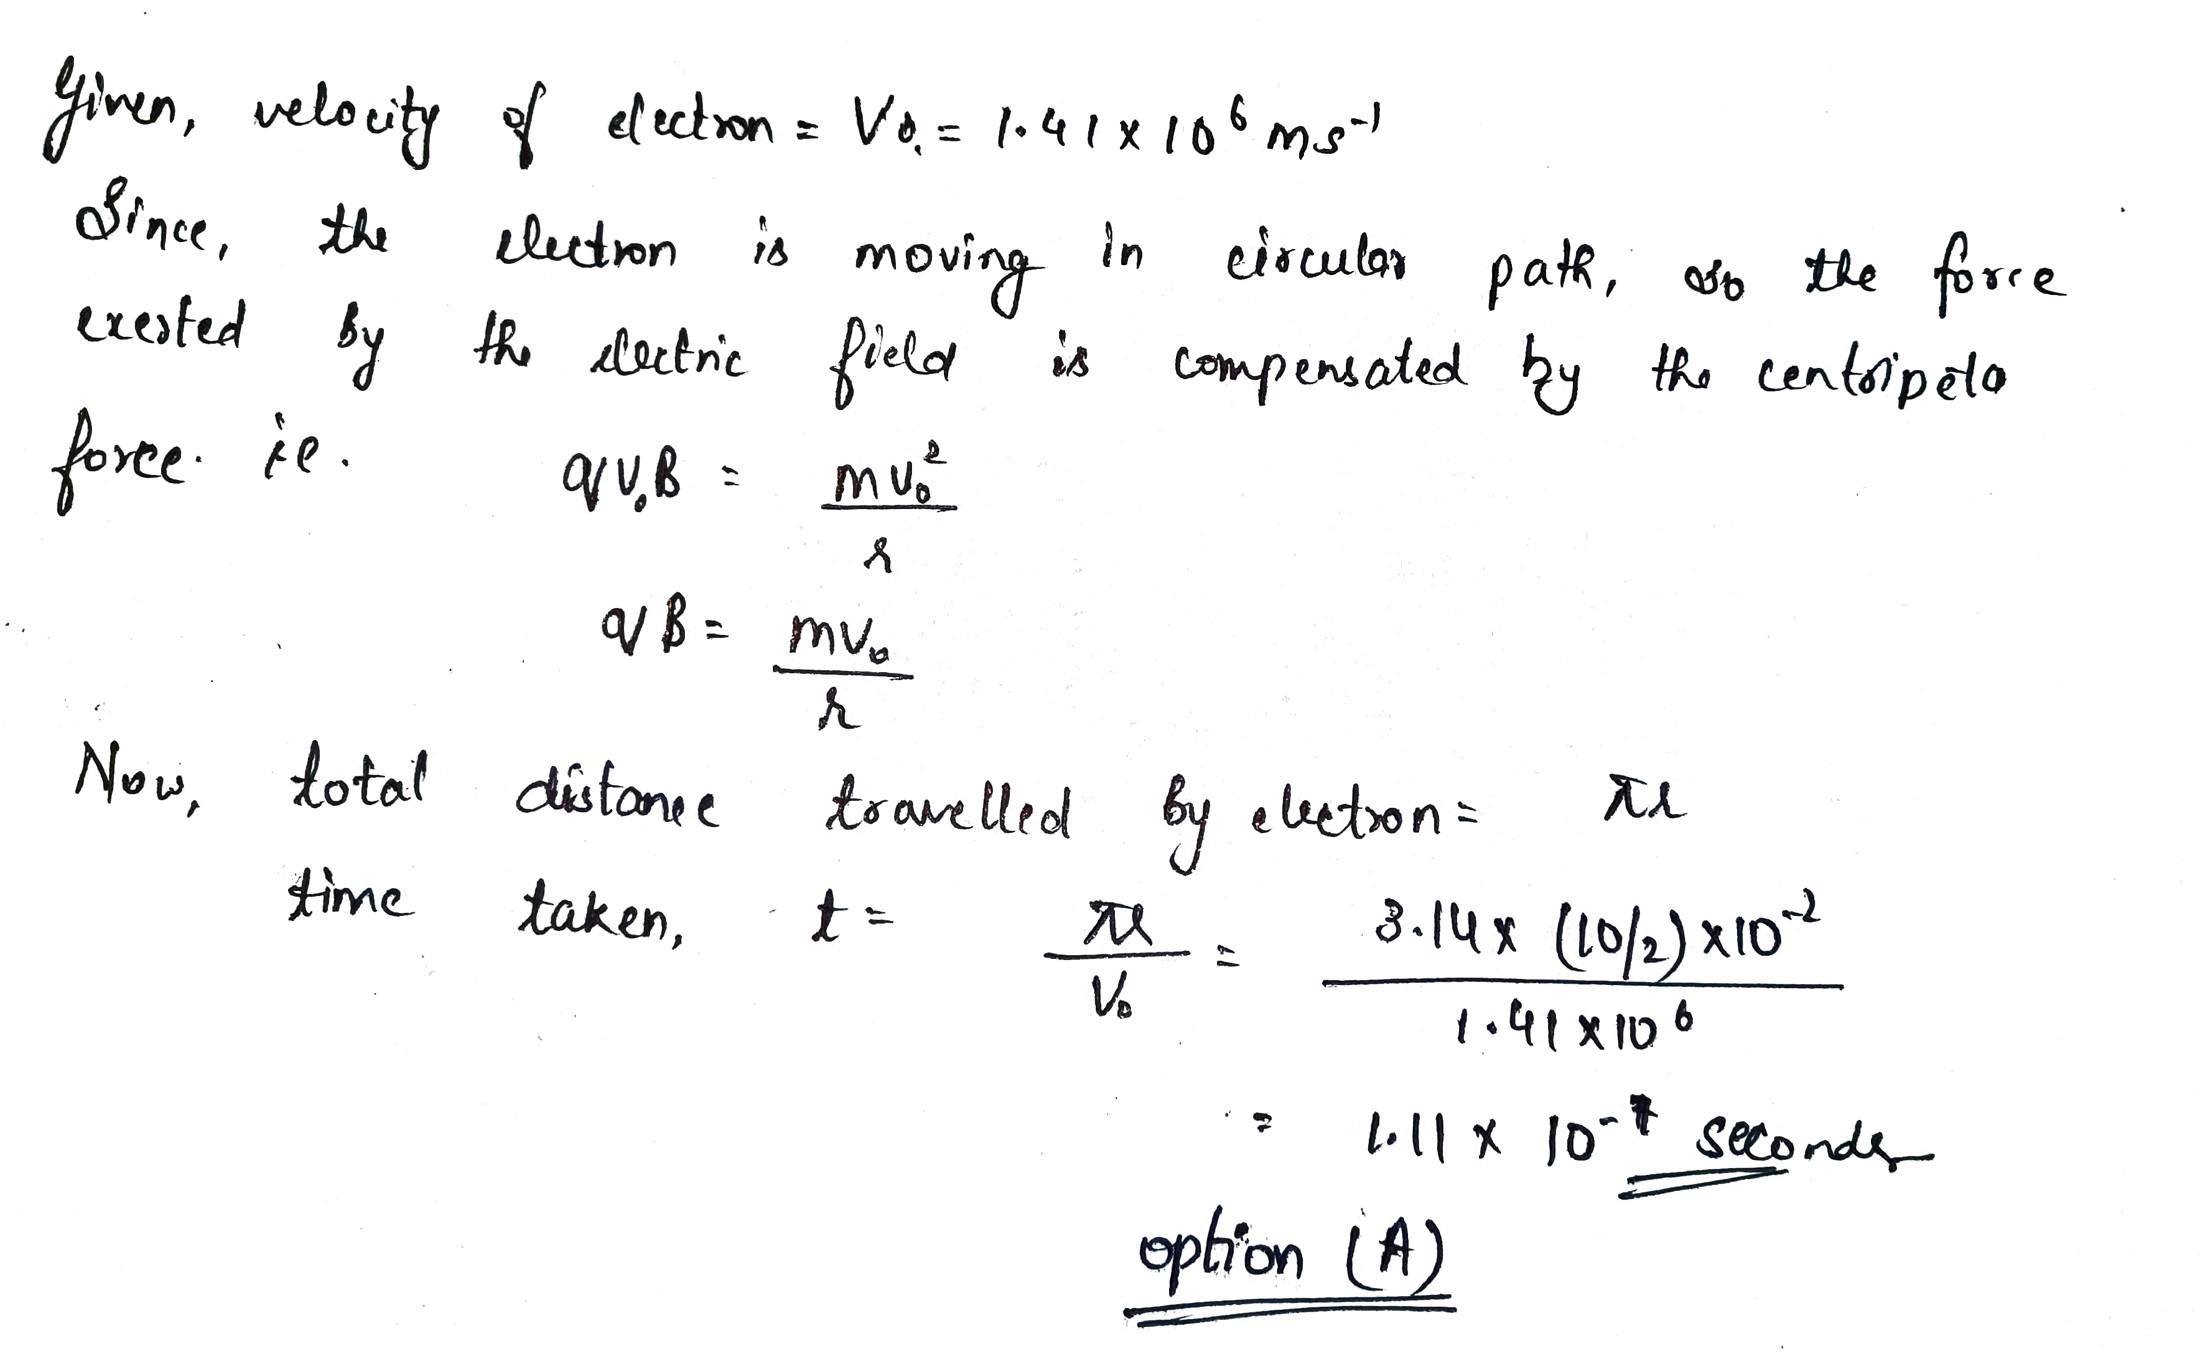 Given, velocity of electron = V0. = 1.41 x 10^6 ms^-1
Since, the electron is moving in circular path, so the force
exerted by the electric field is compensated by the centripeta
force. ie. qV0B = mv0^2 / r
qB = mv0 / r
Now, total distance travelled by electron = πr
time taken, t = πr / V0 = 3.14 x (10/2) x 10^-2 / 1.41 x 10^6
= 1.11 x 10^-7 seconds
option (A)